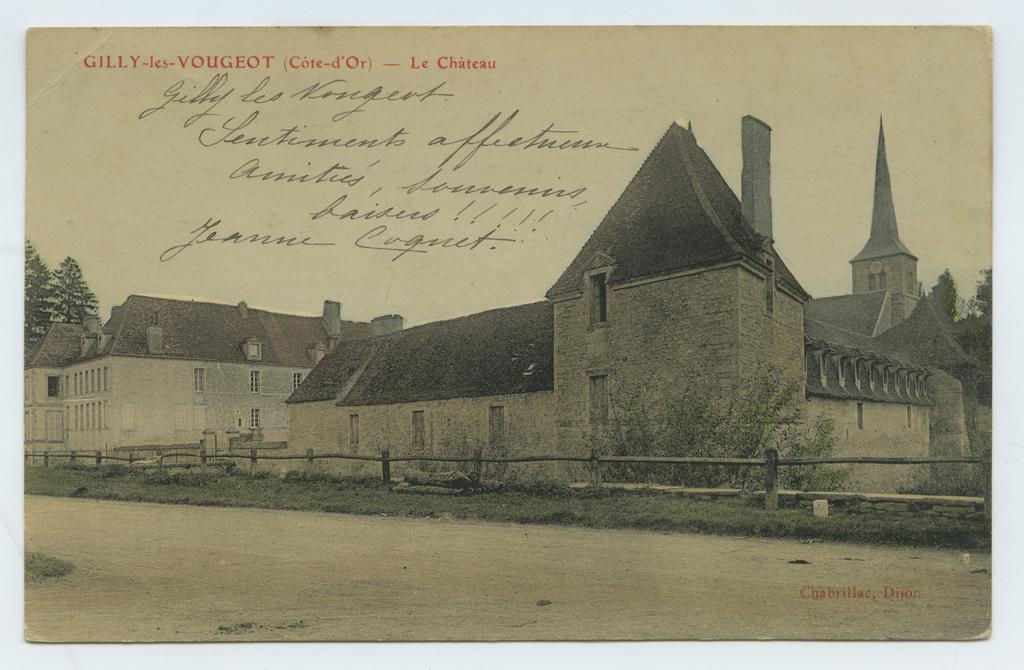 GILLY-les-VOUGEOT (Côte-d'Or) — Le Château
Gilly les Vougeot
Sentiments affectueux
Amitiés, Souvenirs,
baisers !!!!!!
Jeanne Coquet.
Chabrillac, Dijon